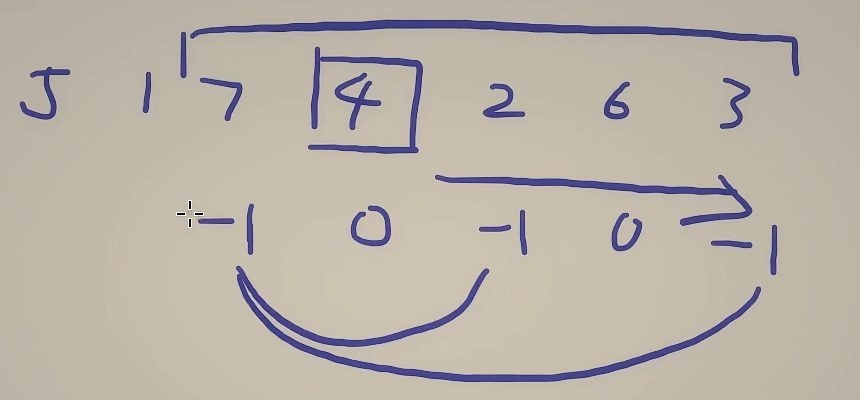 5 1 7 4 2 6 3
-1 0 -1 0 -1